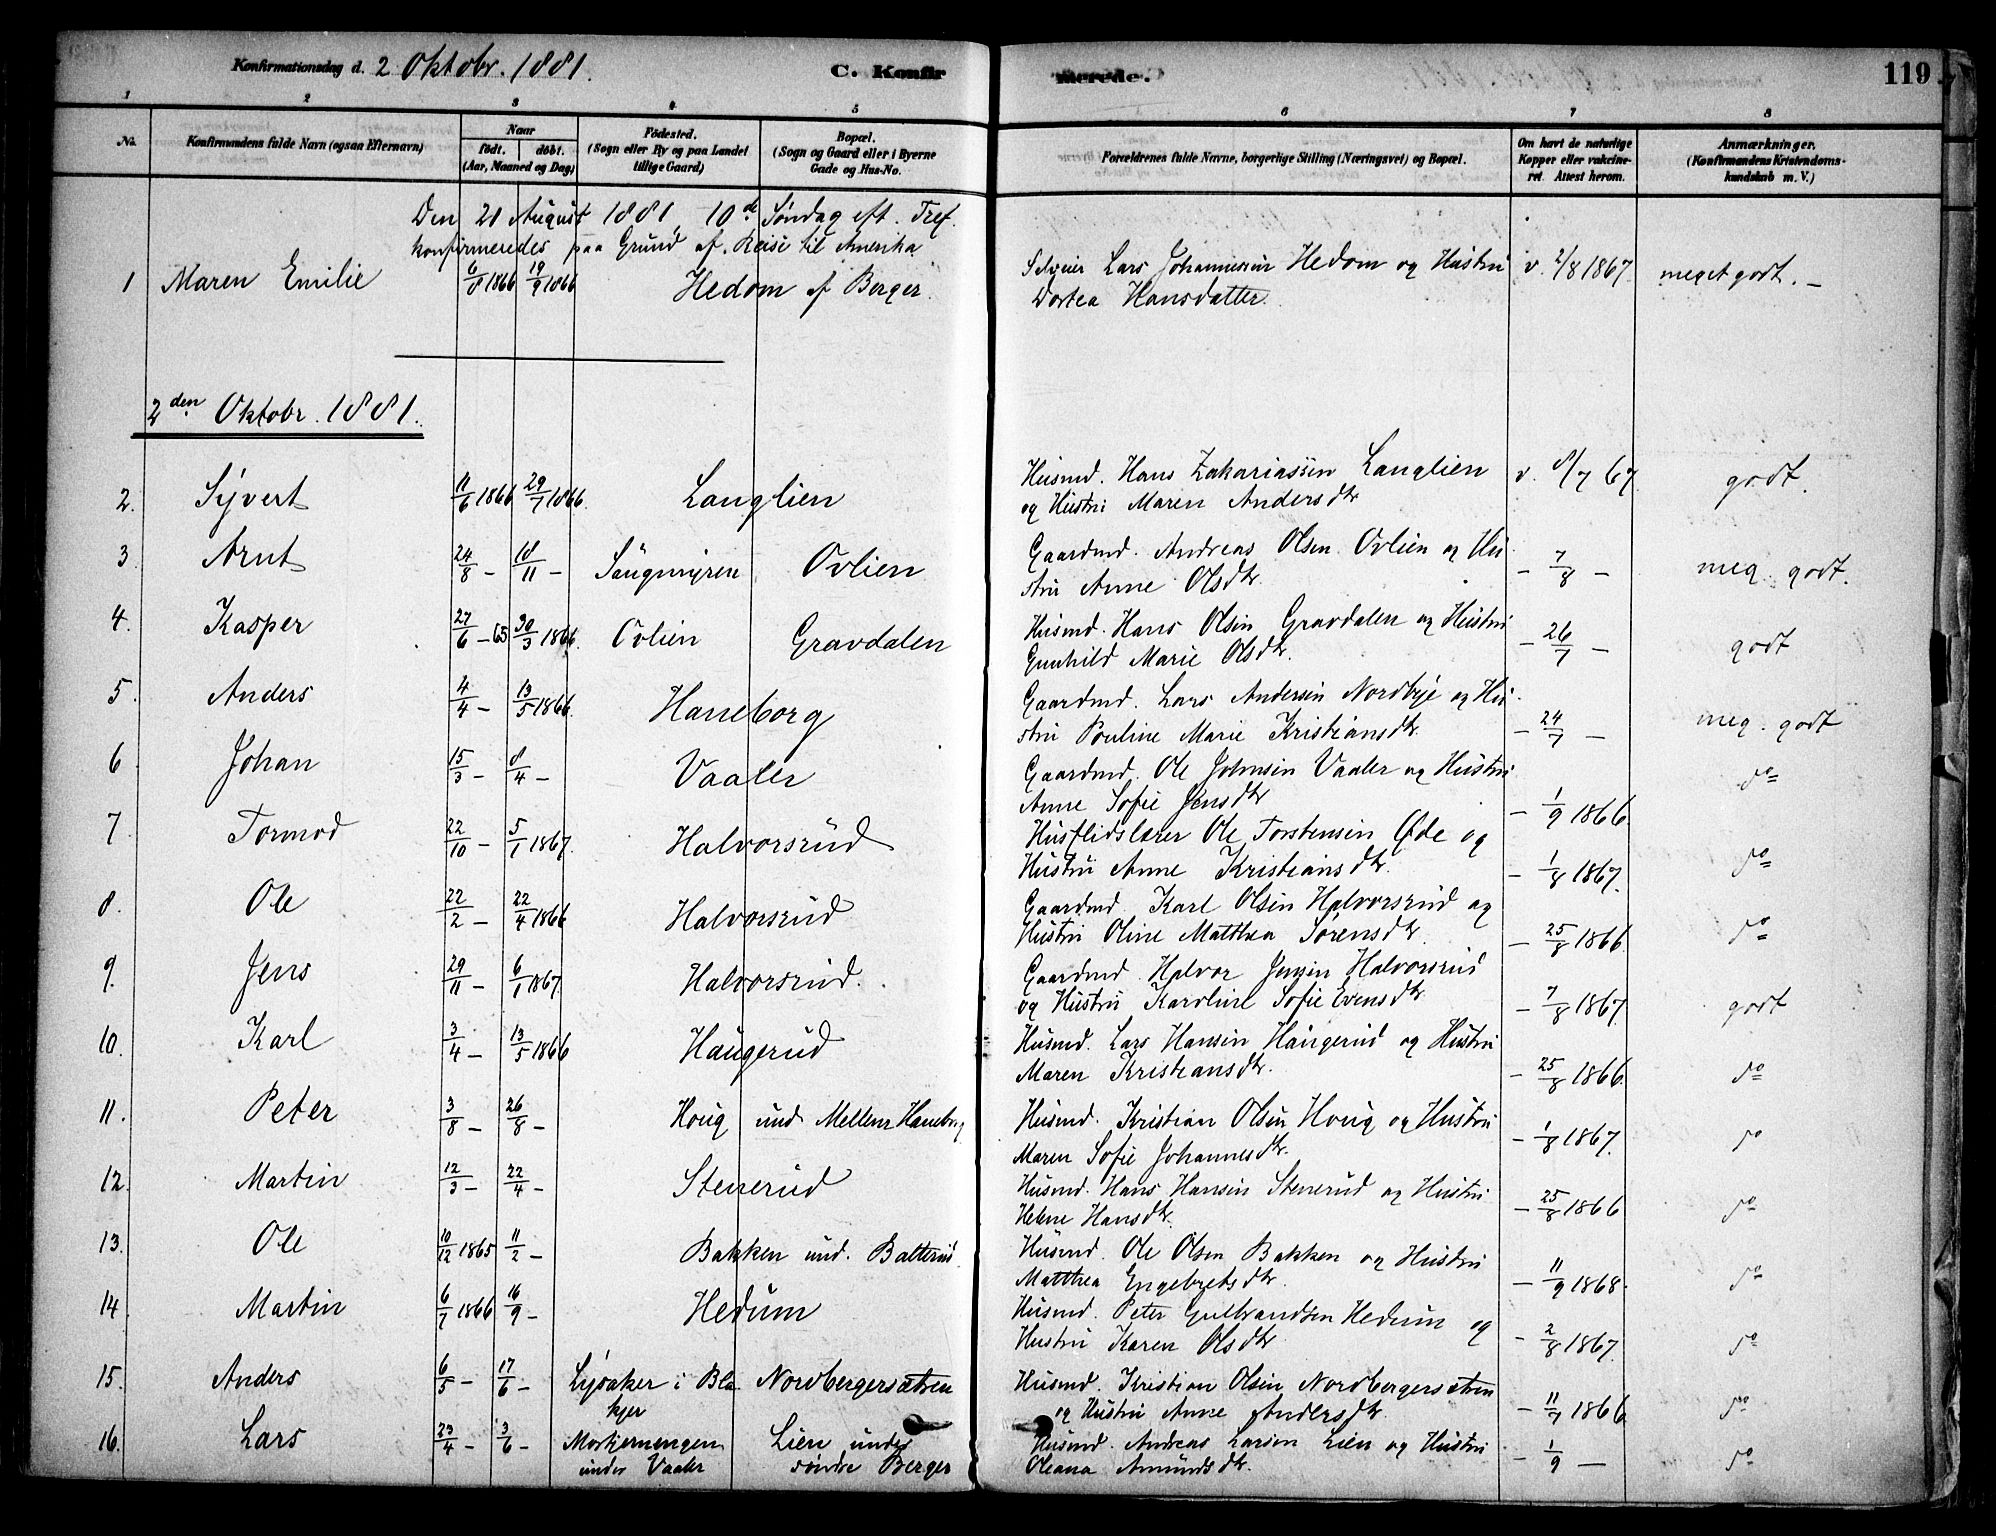 Konfirmationsdag d. 2 Oktobr. 1881. C. Konfirmerede. 119
1 2 3 4 5 6 7 8
No. Konfirmandens fulde Navn (ogsaa Efternavn) Naar født. døbt. (Aar, Maaned og Dag) Födested. (Sogn eller By og paa Landet tillige Gaard) Bopæl. (Sogn og Gaard eller i Byerne Gade og Hus-No. Forældrenes fulde Navne, borgerlige Stilling (Næringsvei) og Bopæl. Om havt de naturlige Kopper eller vakcineret. Attest herom. Anmærkninger. (Konfirmandens Kristendomskundskab m. V.)
Den 21 August 1881, 10de Søndag eft. Tref.
konfirmeredes paa Grund af Reise til Amerika
1 Maren Emilie 6/8 1866 19/9 1866 Hedom af Berger. Selveier Lars Johannessen Hedom og Hustru v. 2/8 1867. meget godt. –
Dortea Hansdatter.
2den Oktobr. 1881.
2. Syvert 11/6 1866 29/7 1866. Langlien Husmd. Hans Zakariassen Langlien v. 8/7 67. godt.
og Hustru Maren Andersdtr
3 Arnt 24/8 – 18/11 – Ovlien Gaardmd. Andreas Olsen Ovlien og Hu-
stru Anne Olsdtr. – 7/8 – meg. godt.
4. Kasper 27/6 – 65 30/3 1866. Ovlien Gravdalen Husmd. Hans Olsen Gravdalen og Hustru – 26/7 – godt
Gunhild Marie Olsdtr.
5. Anders 4/4 – 13/5 1866. Haneborg Gaardmd. Lars Andersen Nordbye og Hu-
stru Pouline Marie Kristiansdtr. – 24/7 – meg. godt
6 Johan 15/3 – 8/4 – Vaaler Gaardmd. Ole Johnsen Vaaler og Hustru do
Anne Sofie Jensdtr – 1/9 1866.
7 Tormod 22/10 – 5/1 1867. Halvorsrud Husflidslærer Ole Torstensen Øde og
Hustru Anne Kristiansdtr. – 1/8 1867. do
8. Ole 22/2 – 22/4 1866 Halvorsrud Gaardmd. Karl Olsen Halvorsrud og
Hustru Oline Matthea Sørensdtr. – 25/8 1866. do
9. Jens 29/11 – 6/1 1867. Halvorsrud. Gaardmd. Halvor Jensen Halvorsrud
og Hustru Karoline Sofie Evensdtr. – 7/8 1867. godt
10. Karl 3/4 – 13/5 1866 Haugerud Husmd. Lars Hansen Haugerud og Hustru
Maren Kristiansdtr. – 25/8 1866. do
11. Peter 3/8 – 26/8 – Houg und. Mellem Haneborg Husmd. Kristian Olsen Houg og Hustru – 1/8 1867. do
Maren Sofie Johannesdtr.
12. Martin 12/3 – 22/4 – Stenerud Husmd. Hans Hansen Stenerud og Hustru – 25/8 1866 do
Helene Hansdtr.
13. Ole 10/12 1865 11/2 – Bakken und. Balterud. Husmd. Ole Olsen Bakken og Hustru
Matthea Engebretsdtr. – 11/9 1868. do
14. Martin 6/7 1866 16/9 – Hedum Husmd. Peter Gulbrandsen Hedum og
Hustru Karen Olsdtr – 2/8 1867. do
15. Anders 6/5 – 17/6 – Lysaker i Bla- Nordbergersætren Husmd. Kristian Olsen Nordbergersætren
kjer og Hustru Anne Andersdtr. – 11/7 1866 do
16. Lars 23/4 – 3/6 – Lien under Husmd. Andreas Larsen Lien og Hustru – 1/9 – do
under Vaaler søndre Berger Oleana Amundsdtr.